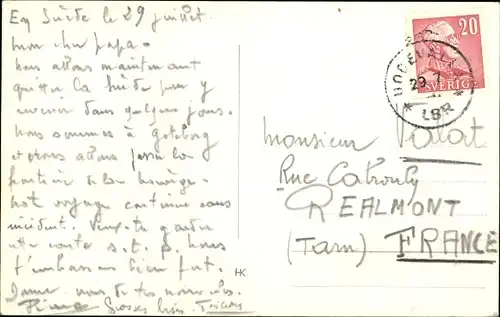 En Suède le 29 juillet.
mon cher papa.
Nous allons maintenant
quitter la Suède pour y
revenir dans quelques jours.
Nous sommes à Goteborg
et nous allons passer la
frontière de la Norvège.
Not voyage continue sans
incident. Veux-tu garder
cette carte s. t. p. Nous
t'embrassons bien fort.
Donne nous de tes nouvelles.
Grosses bises.
HK
20
SVERIGE
UDDEVALLA
29.7
LBR
Monsieur Valat
Rue
REALMONT
(Tarn) FRANCE